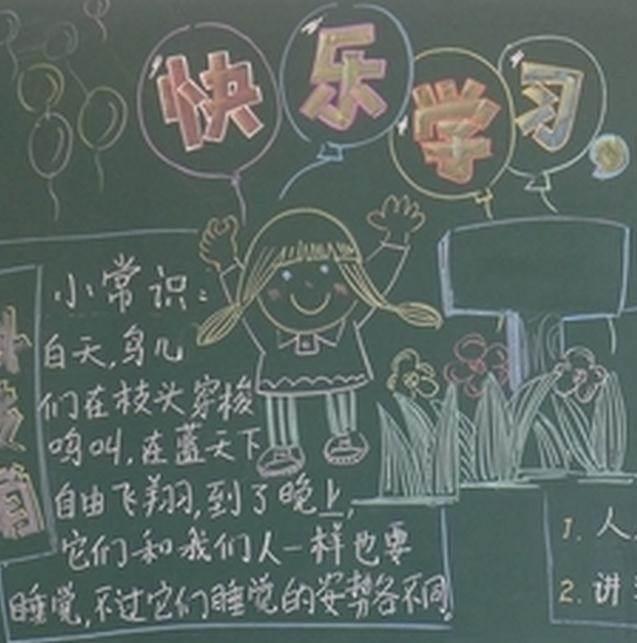 快乐学习
小常识：
白天，鸟儿
们在枝头穿梭
鸣叫，在蓝天下
自由飞翔，到了晚上，
它们和我们人一样也要
睡觉，不过它们睡觉的姿势各不同。
1. 人
2. 讲